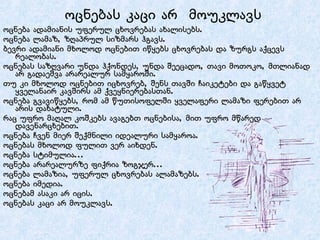 ოცნებას კაცი არ მოუკლავს
ოცნება ადამიანის უფერულ ცხოვრებას ახალისებს.
ოცნება ლამაზ, ზღაპრულ სიზმარს ჰგავს.
ბევრი ადამიანი მხოლოდ ოცნებით იწყებს ცხოვრებას და ზურგს აქცევს
რეალობას.
ოცნებას საზღვარი უნდა ჰქონდეს, უნდა შეეცადო, თავი მოთოკო, მთლიანად
არ გადაეშვა არარეალურ სამყაროში.
თუ კი მხოლოდ ოცნებით იცხოვრებ, შენს თავში ჩაიკეტები და გაწყვეტ
ყველანაირ კავშირს ამ ქვეყნიერებასთან.
ოცნება გვავიწყებს, რომ ამ წუთისოფელში ყველაფერი ლამაზი ფერებით არ
არის დახატული.
რაც უფრო მაღალ კოშკებს ავაგებთ ოცნებისა, მით უფრო მწარედ
დავენარცხებით.
ოცნება ჩვენ მიერ შექმნილი იდეალური სამყაროა.
ოცნებას მხოლოდ ფულით ვერ აიხდენ.
ოცნება სტიმულია...
ოცნება არარეალურზე ფიქრია ზოგჯერ...
ოცნება ლამაზია, უფერულ ცხოვრებას ალამაზებს.
ოცნება იმედია.
ოცნებამ ასაკი არ იცის.
ოცნებას კაცი არ მოუკლავს.